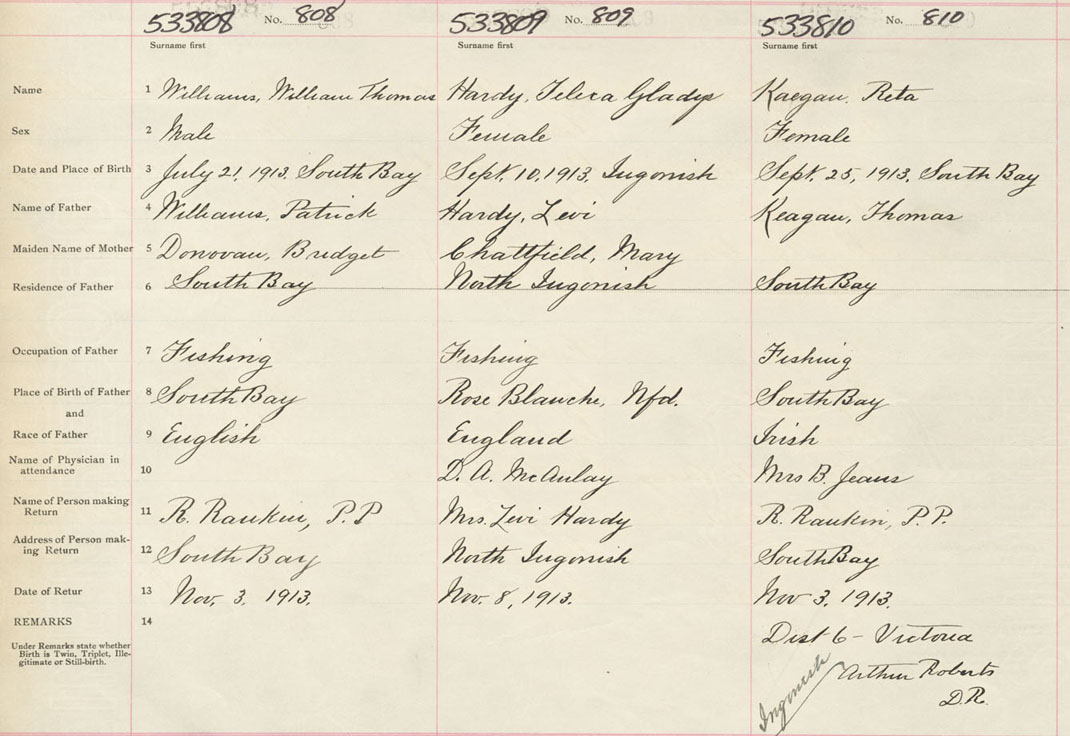 533808 No. 808 533809 No. 809 533810 No. 810
Surname first Surname first Surname first
Name 1 Williams, William Thomas Hardy, Teleca Gladys Kaegan, Reta
Sex 2 Male Female Female
Date and Place of Birth 3 July 21, 1913. South Bay Sept. 10, 1913, Ingonish Sept. 25, 1913, South Bay
Name of Father 4 Williams, Patrick Hardy, Levi Keagan, Thomas
Maiden Name of Mother 5 Donovan, Bridget Chattfield, Mary
Residence of Father 6 South Bay North Ingonish South Bay
Occupation of Father 7 Fishing Fishing Fishing
Place of Birth of Father 8 South Bay Rose Blanche, Nfd. South Bay
and
Race of Father 9 English England Irish
Name of Physician in
attendance 10 D. A. McAulay Mrs B. Jeans
Name of Person making
Return 11 R. Rankin, P.P Mrs. Levi Hardy R. Rankin, P.P.
Address of Person mak-
ing Return 12 South Bay North Ingonish South Bay
Date of Retur 13 Nov. 3. 1913. Nov. 8, 1913. Nov 3, 1913.
REMARKS 14
Dist 6 - Victoria
Under Remarks state whether
Birth is Twin, Triplet, Ille-
gitimate or Still-birth.
Ingonish Arthur Roberts
D.R.